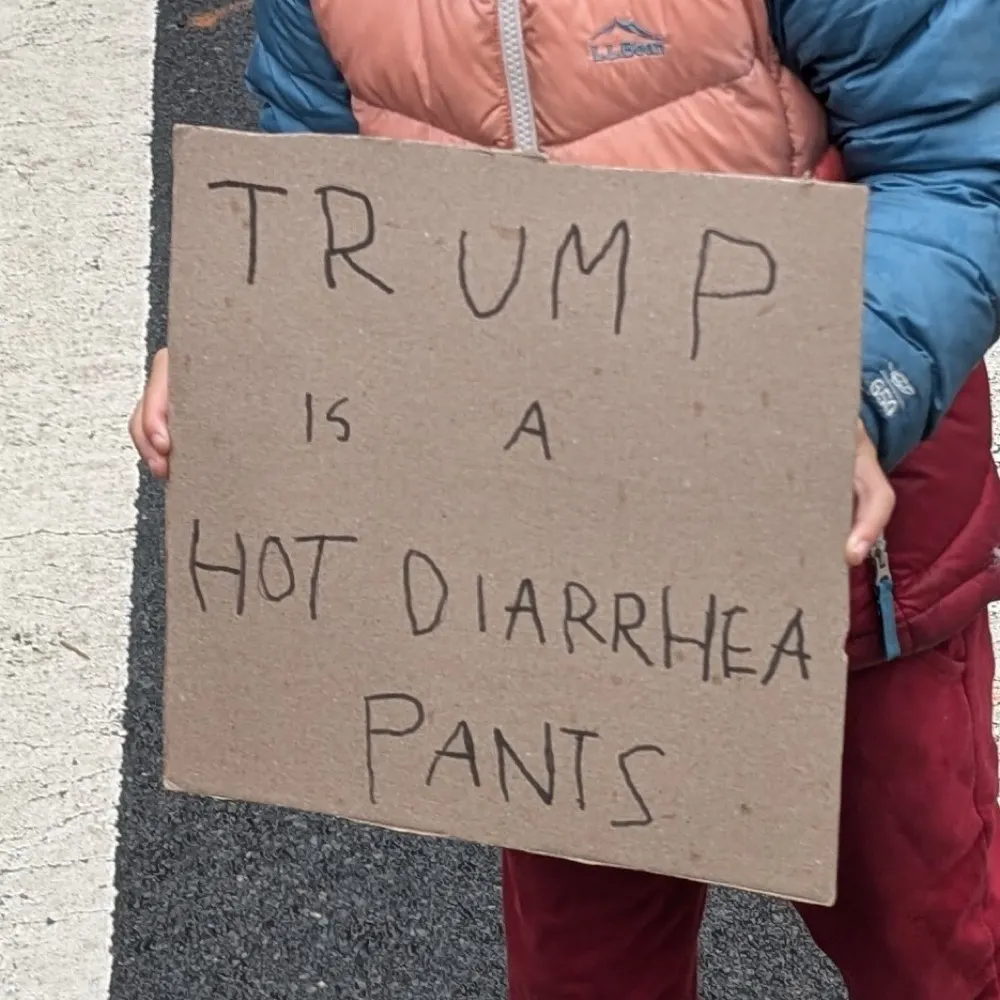 L.L.Bean
TRUMP
IS A
HOT DIARRHEA
PANTS
650